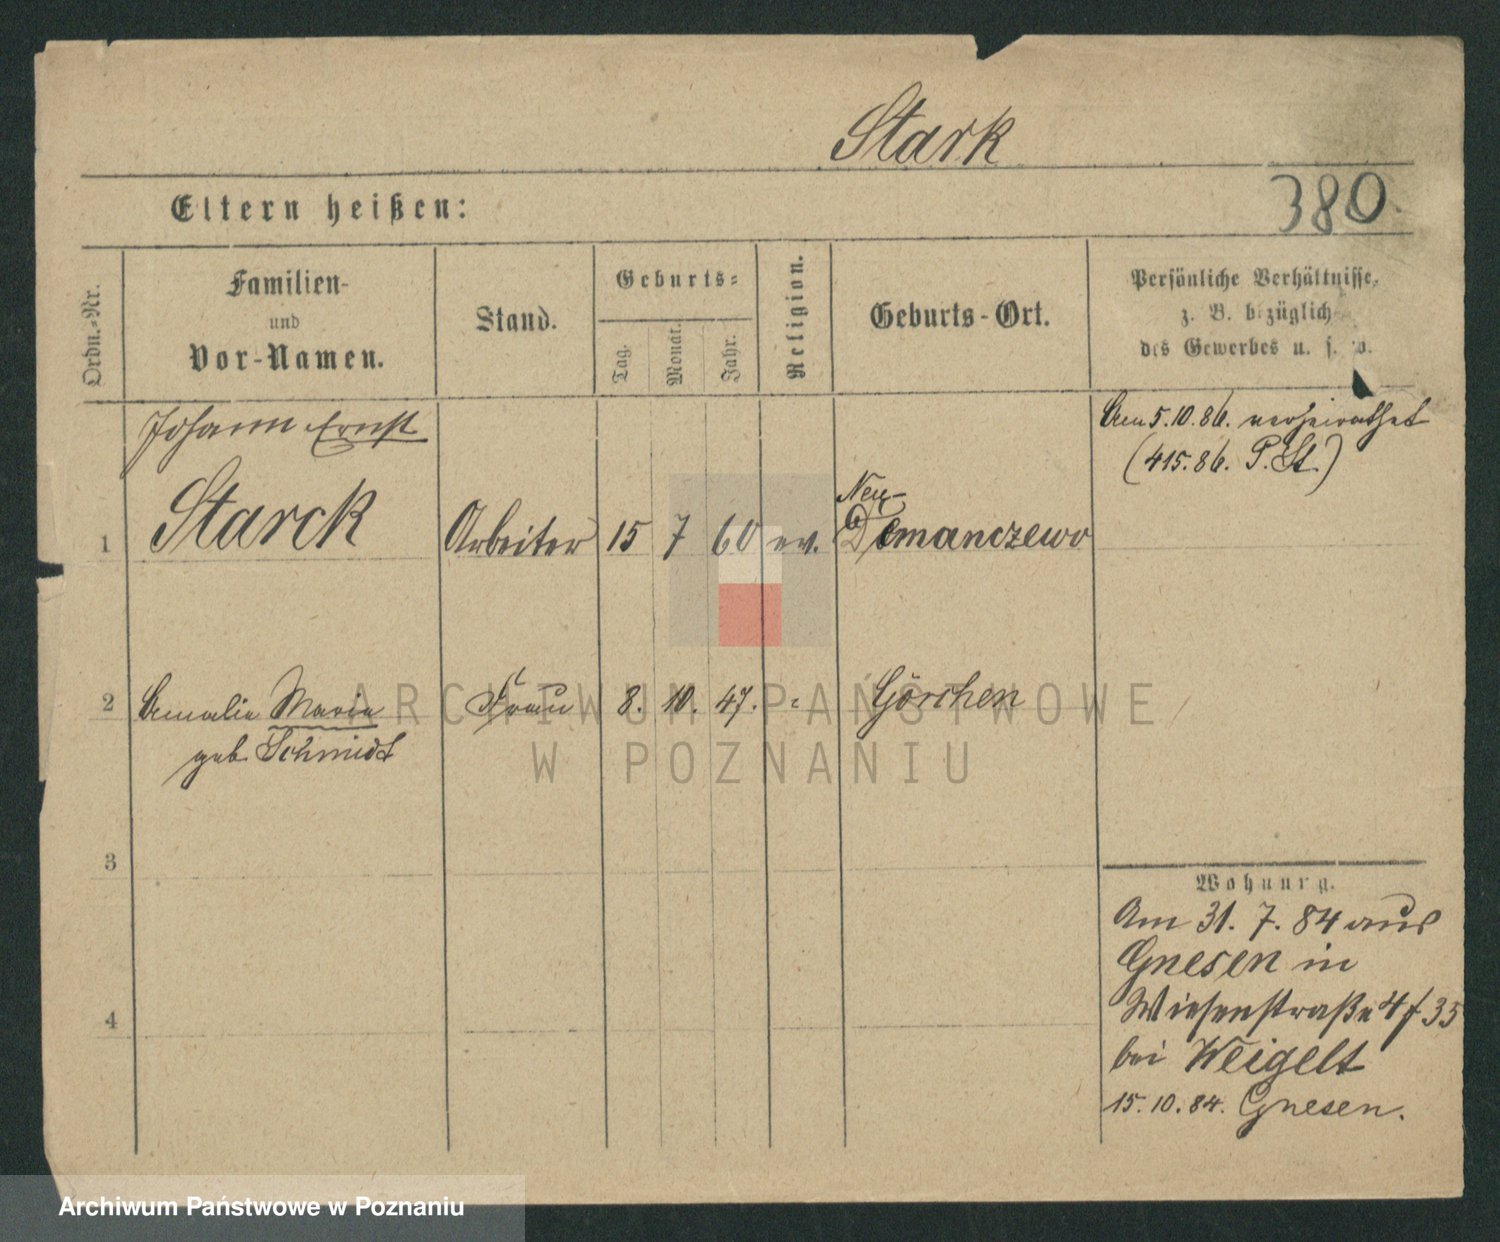 Stark
380.
Eltern heißen:
Ordn.-Nr.
Familien-
und
Vor-Namen.
Stand.
Geburts-
Tag.
Monat.
Jahr.
Religion.
Geburts-Ort.
Persönliche Verhältnisse,
z. B. bezüglich
des Gewerbes u. s. w.
Am 5.10.86. verheirathet
(415.86. P. St.)
Johann Ernst
1 Starck Arbeiter 15 7 60 ev. Neu-
manczewo
2 Amalie Marie Frau 8. 10. 47. Görchen
geb. Schmidt
3
4
Wohnung.
Am 31. 7. 84 aus
Gnesen in
Wiesenstraße 4 f 35
bei Weigelt
15.10.84. Gnesen.
ARCHIWUM PAŃSTWOWE
W POZNANIU
Archiwum Państwowe w Poznaniu